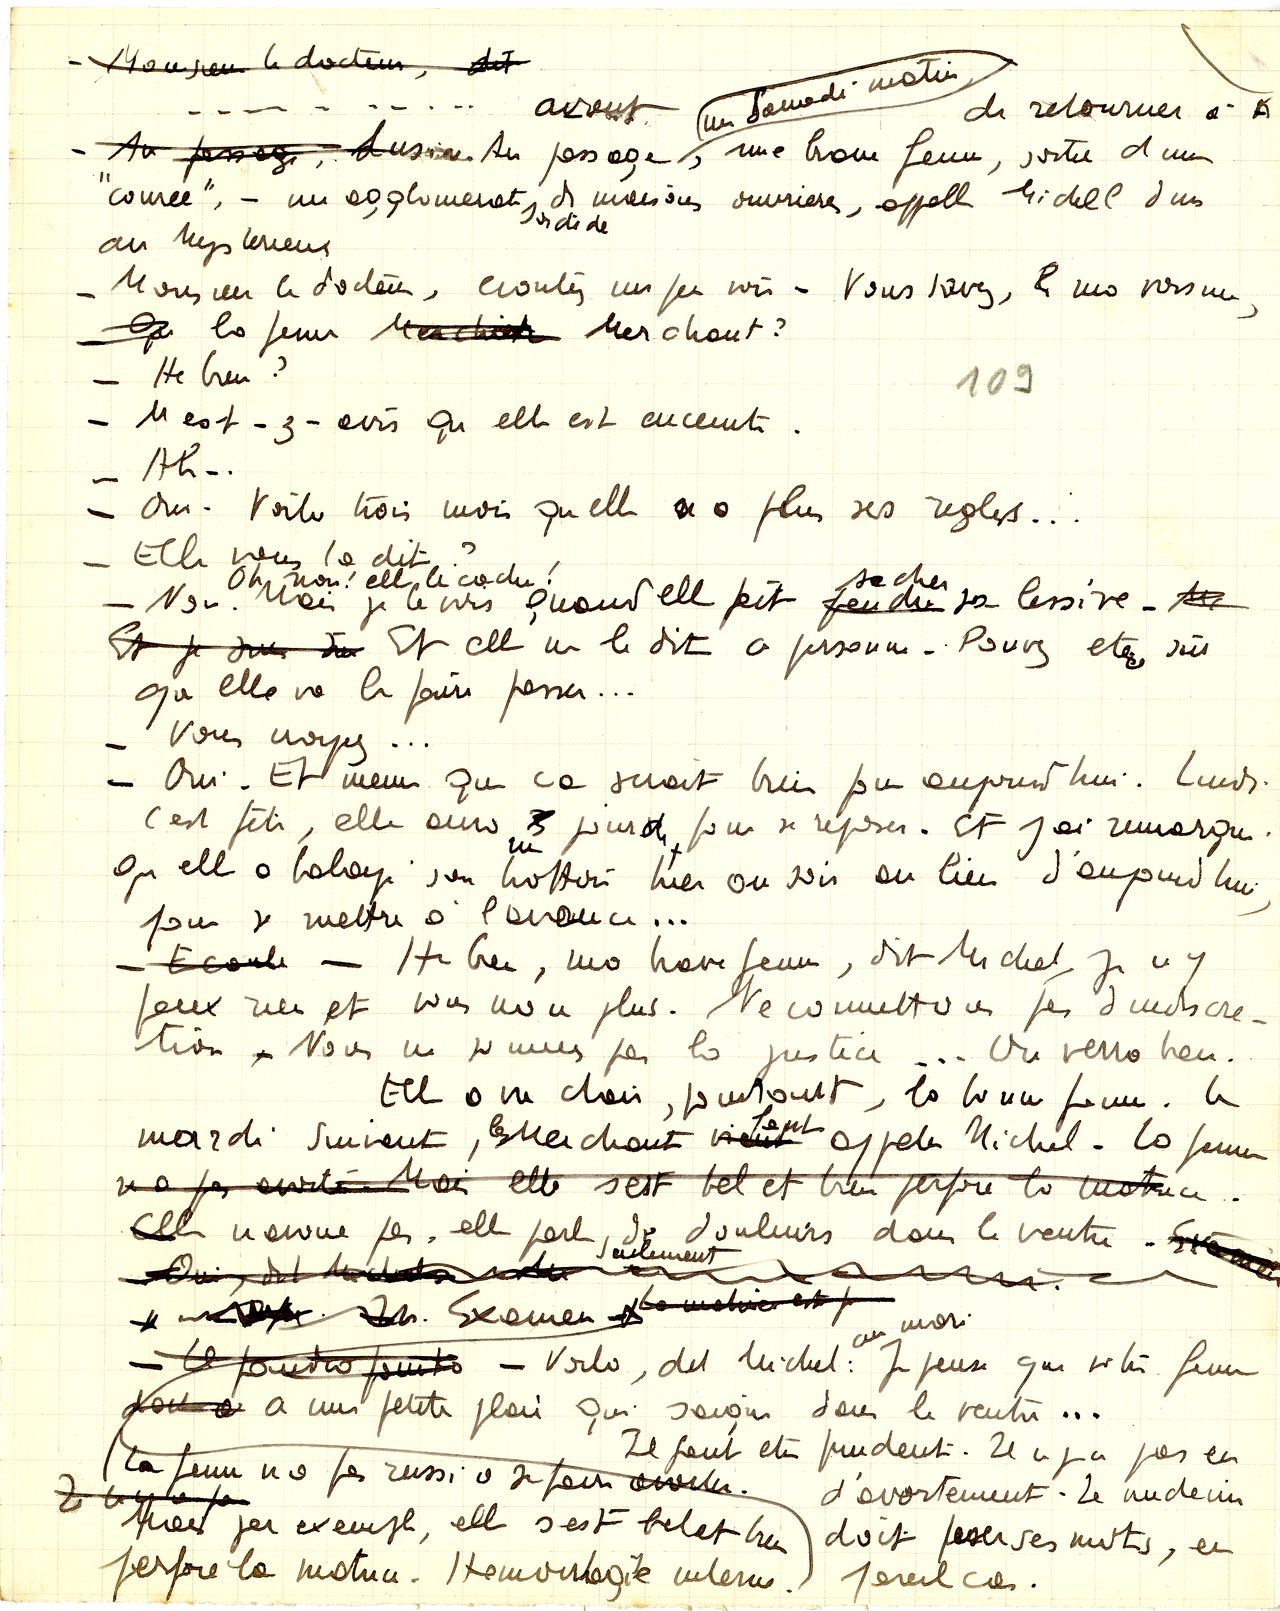 - Monsieur le docteur, dit
- - - - - - - - avant un Samedi matin de retourner à
- Au passage, Au passage, une brave femme, sortie d'une
"courée", - un agglomerat sordide de maisons ouvrieres, appelle Michel d'un
air mysterieux
- Monsieur le docteur, ecoutez un peu voir - Vous savez, ma voisine,
la femme Merchant?
- He bien?
109
- M'est-z-avis qu elle est enceinte.
- Ah..
- Oui. Voila trois mois qu elle n a plus ses regles...
- Elle vous l a dit?
Oh non! elle le cache! secher
- Non. Mais je le vois quand elle pend sa lessive -
Et je suis sûr Et elle ne le dit a personne. Pouvez etre sûr
qu elle va le faire passer...
- Vous croyez...
- Oui. Et meme que ca serait bien pour aujourd'hui. Lundi
c est fête, elle aura 3 jours pour se reposer. Et j'ai remarqué
qu elle a balayé son trottoir hier au soir au lieu d'aujourd'hui,
pour se mettre à l'avance...
- Ecoute - He bien, ma brave femme, dit Michel, je n y
peux rien et vous non plus. Ne commettons pas d indiscre-
tion. Nous ne sommes pas la justice ... On verra bien.
Elle a vu clair, pourtant, la bonne femme. Le
mardi suivant, les Merchant vient font appeler Michel. La femme
n a pas avorté. Mais elle s est bel et bien perforé la matrice.
Elle n avoue pas, elle parle de douleurs dans le ventre.
seulement
Oui, dit Michel
Examen la matrice est p
au mari
- Il faudra - Voila, dit Michel: Je pense que votre femme
a une petite plaie qui saigne dans le ventre...
Il faut etre prudent. Il n y a pas eu
La femme n a pas reussi a se faire avorter.
d'avortement. Le medecin
Il n y a pas
Mais par exemple, elle s est bel et bien
doit peser ses mots, en
perforé la matrice. Hemorragie interne.
pareil cas.